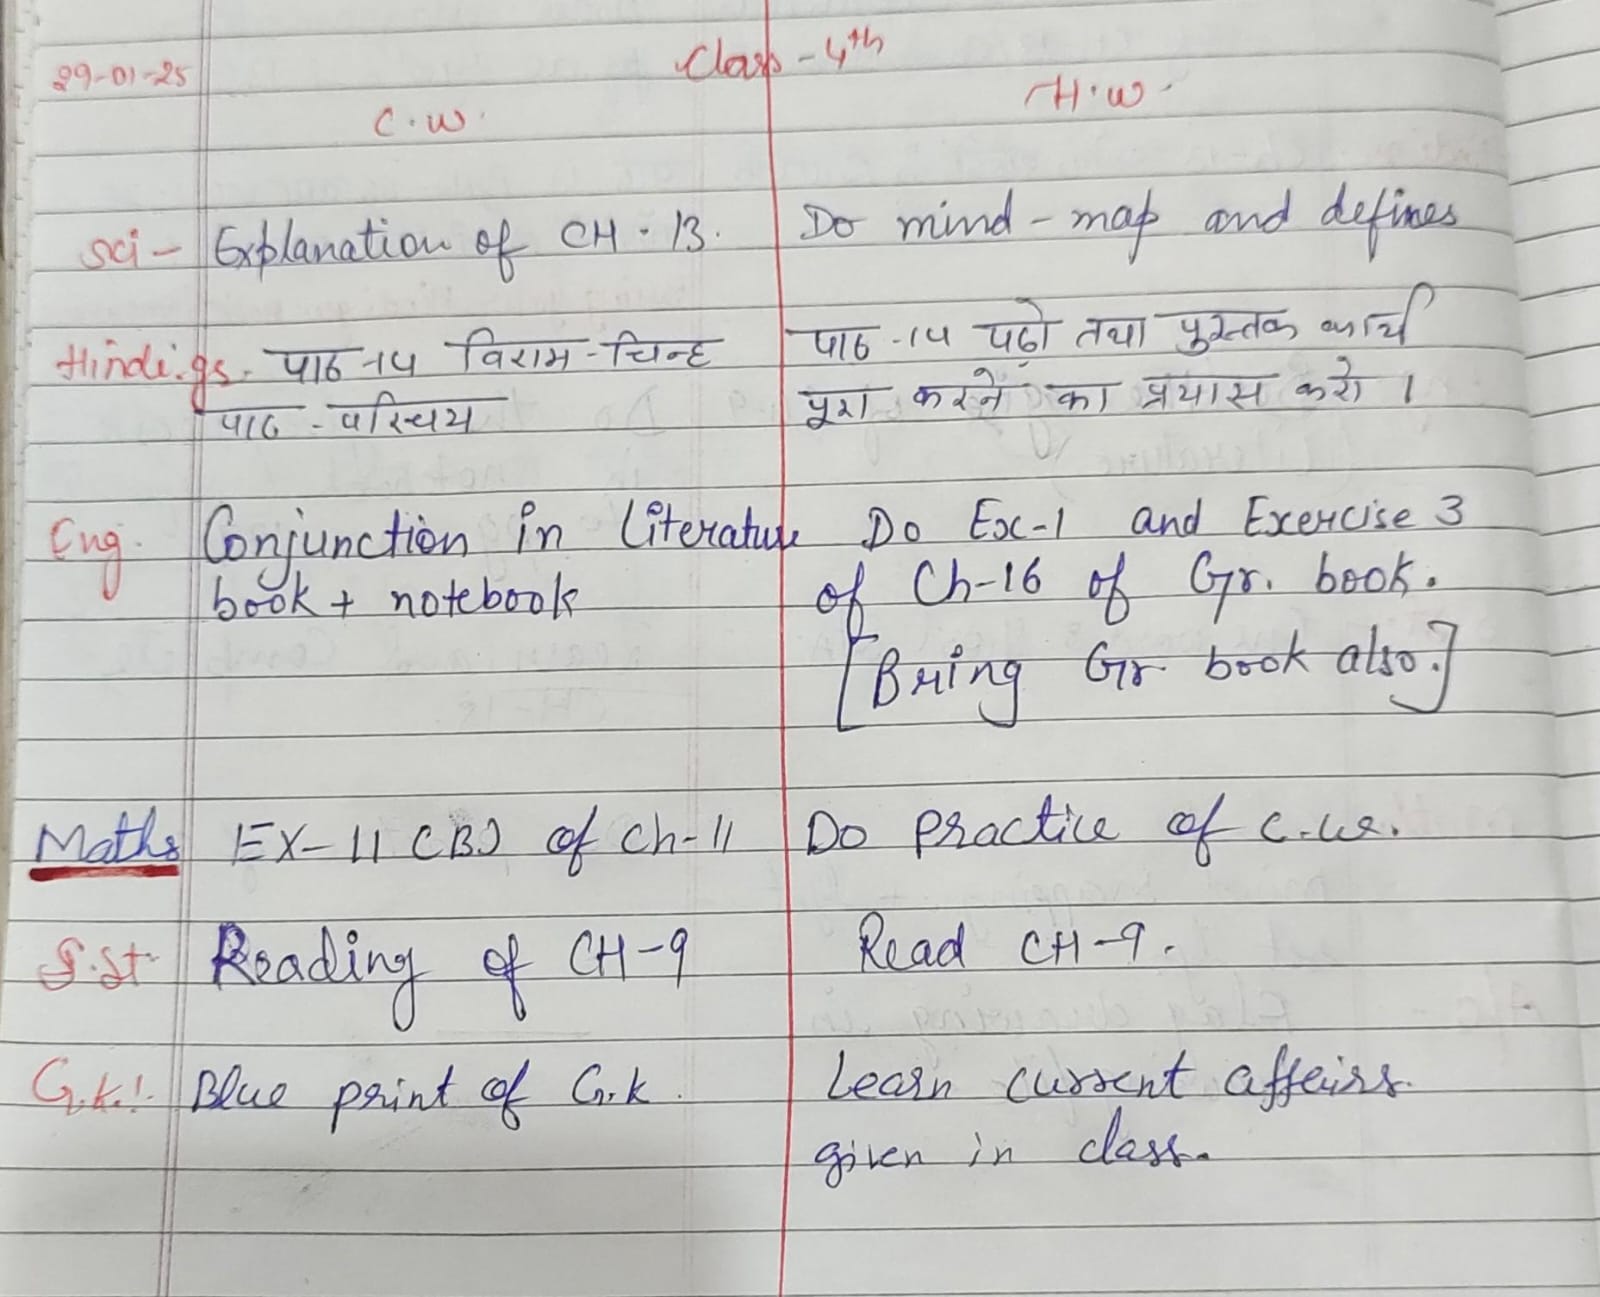 Class - 4th
29-01-25
C.W.
H.W.
Sci - Explanation of CH - 13. Do mind - map and defines
Hindi.gs. पाठ -14 विराम - चिन्ह पाठ -14 पढ़ो तथा पुस्तक कार्य
पाठ - परिचय पूरा करने का प्रयास करो ।
Eng. Conjunction in Literature Do Ex-1 and Exercise 3
book + notebook of Ch-16 of Gr. book.
[Bring Gr. book also.]
Maths EX- 11 (B) of Ch-11 Do practice of C.W.
S.St. Reading of CH-9 Read CH-9.
G.K.:- Blue print of G.K. Learn current affeirs.
given in class.